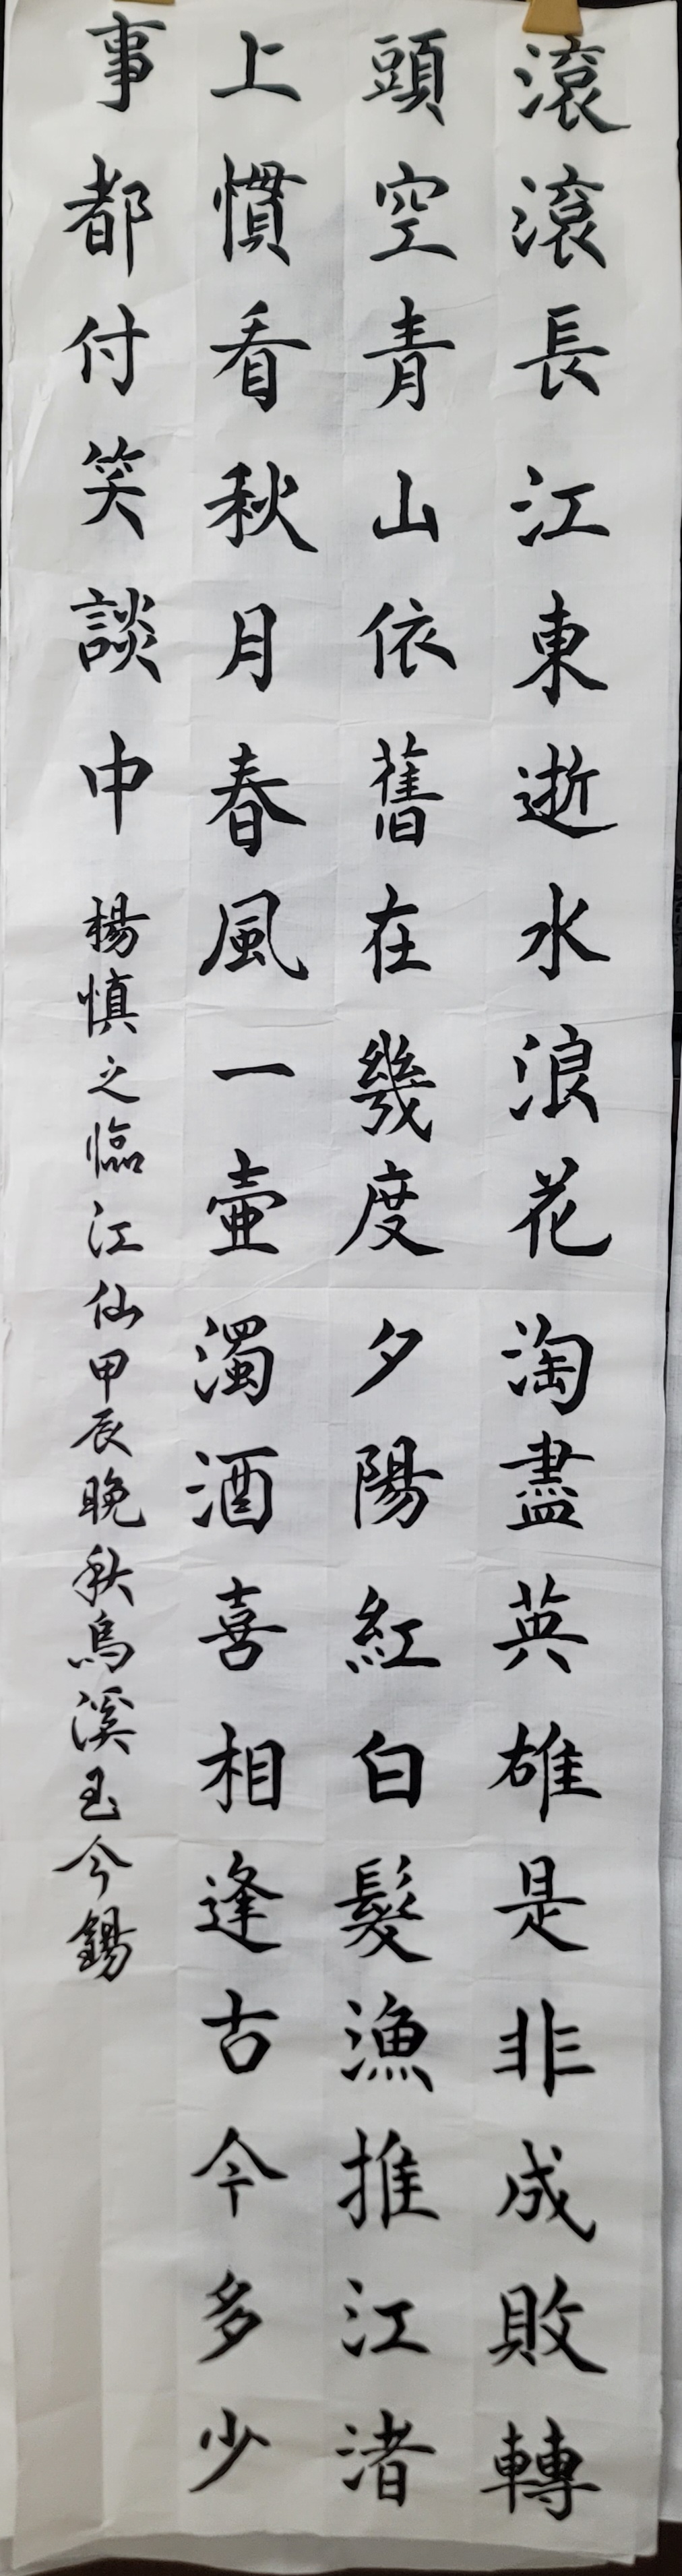 滾滾長江東逝水浪花淘盡英雄是非成敗轉
頭空青山依舊在幾度夕陽紅白髮漁推江渚
上慣看秋月春風一壷濁酒喜相逢古今多少
事都付笑談中楊慎之臨江仙甲辰晚秋烏溪玉今錫